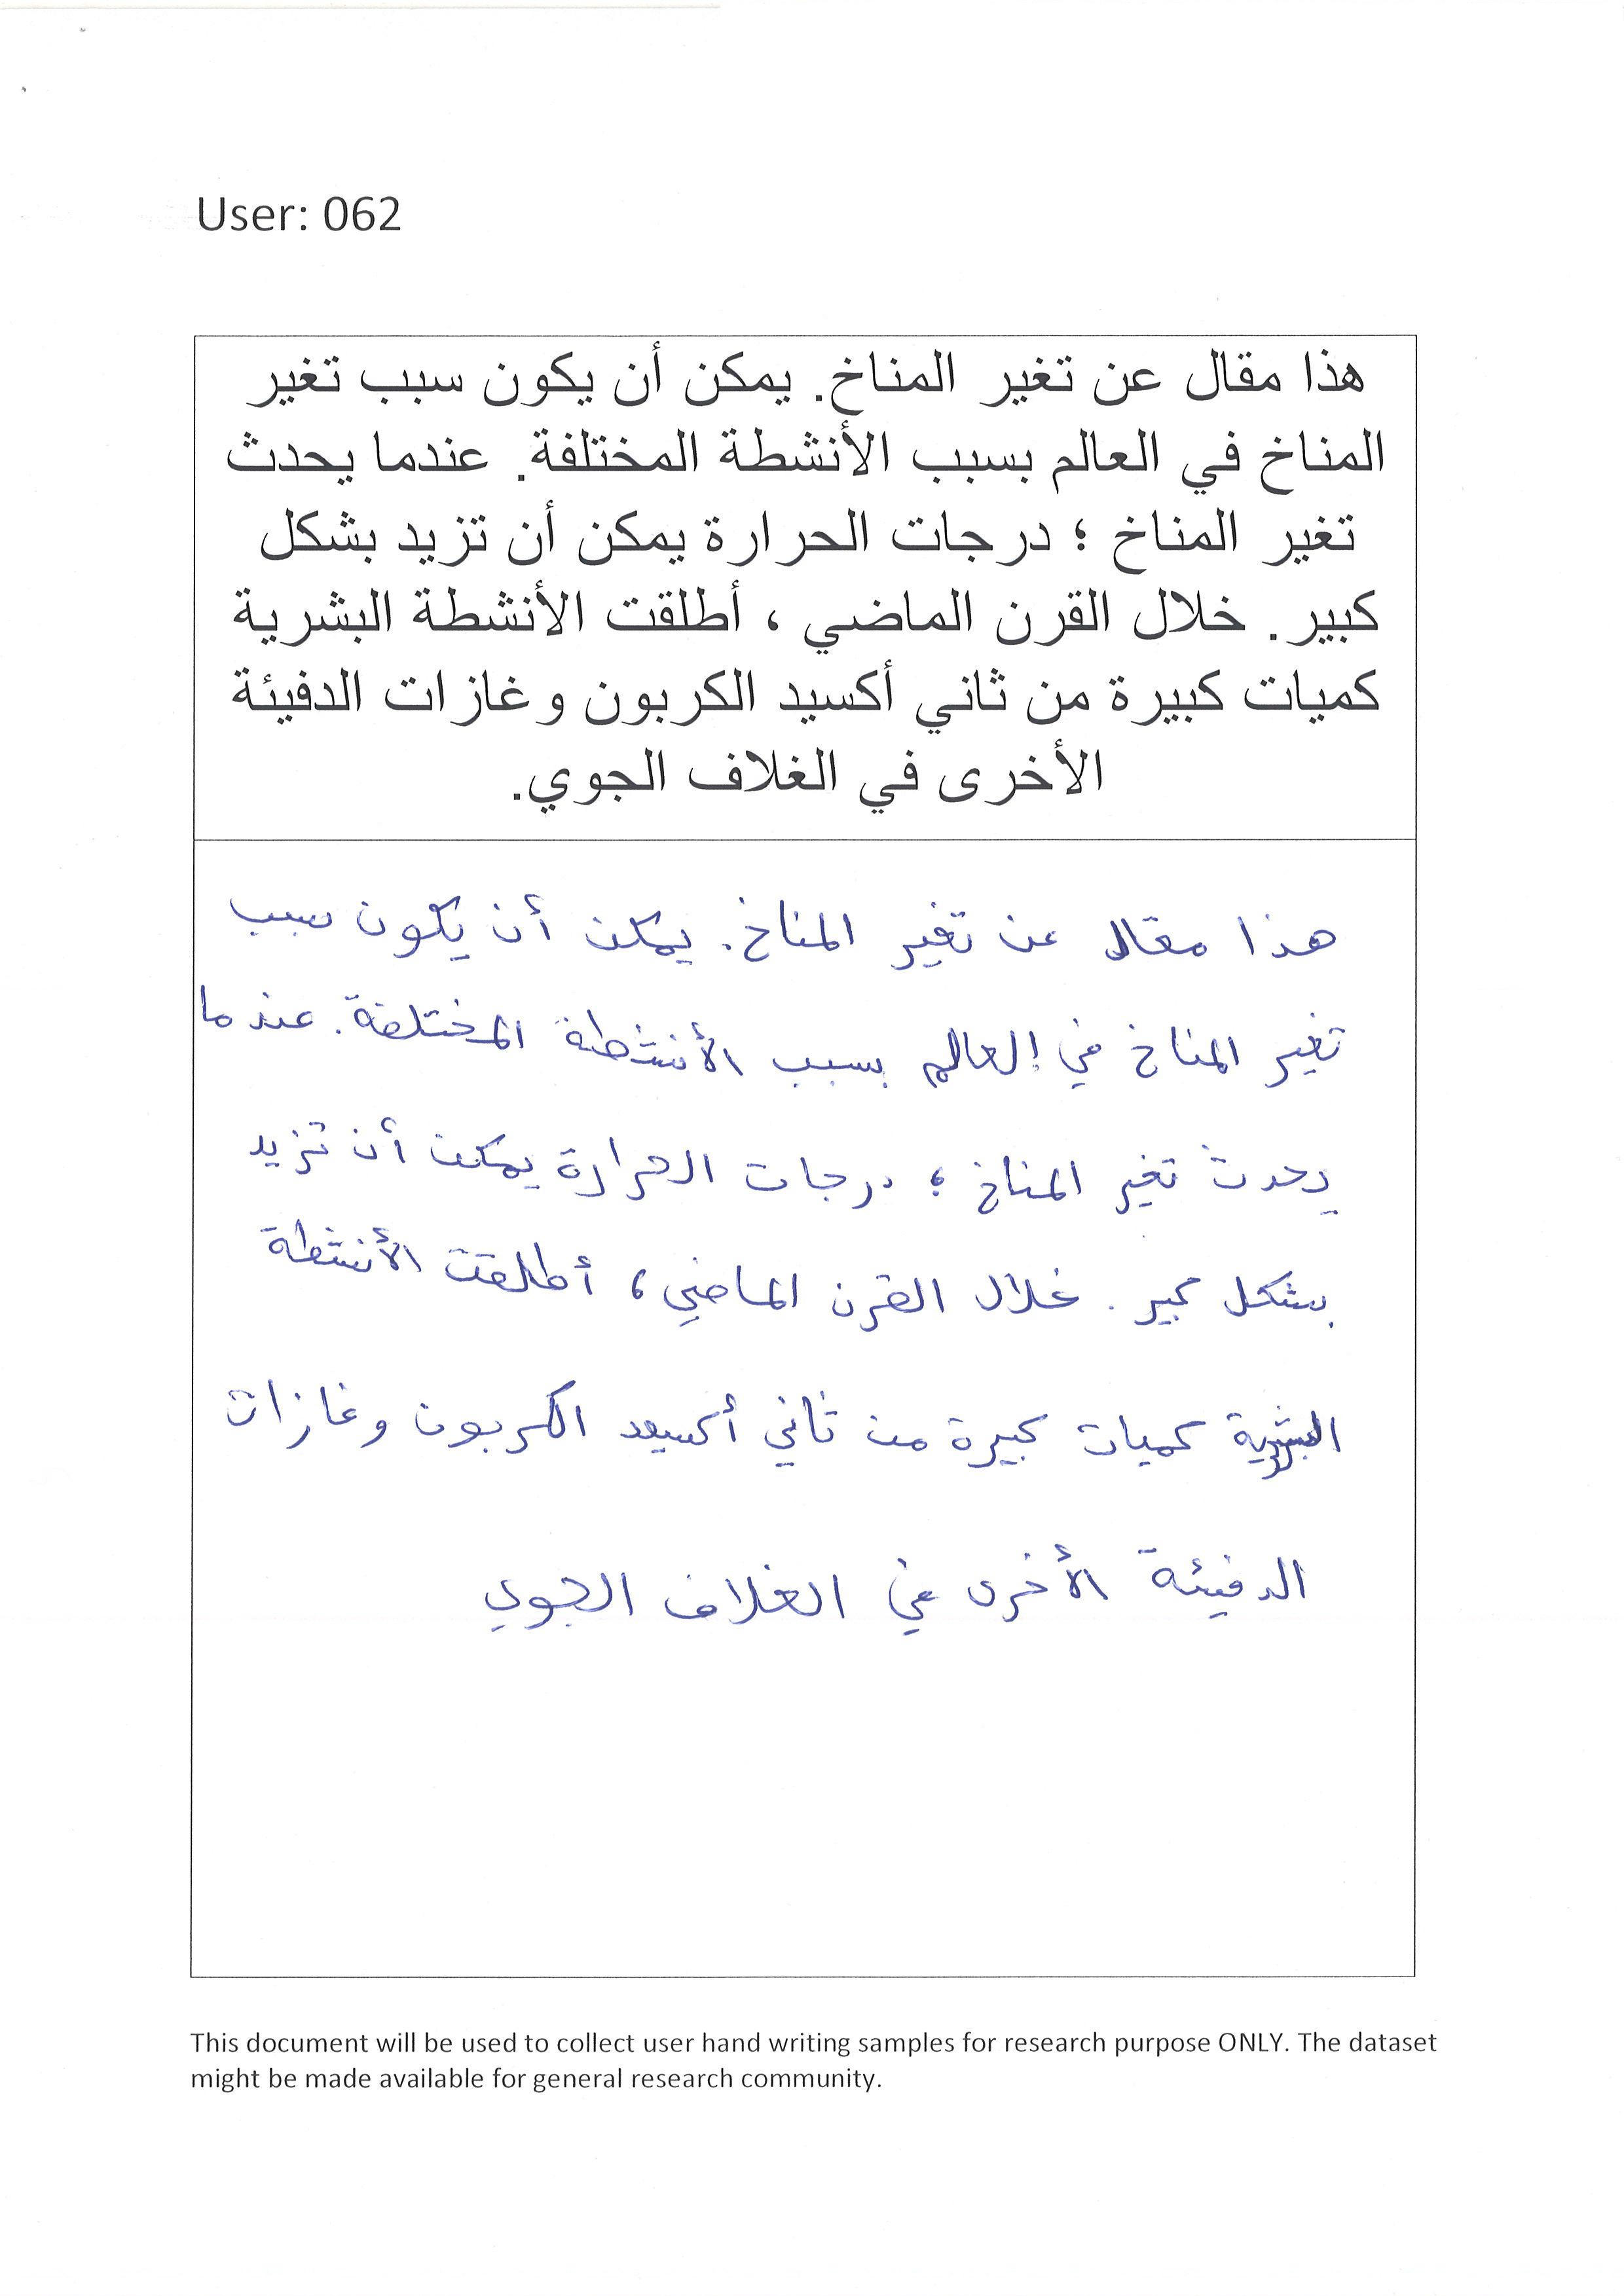 User: 062
هذا مقال عن تغير المناخ. يمكن أن يكون سبب تغير
المناخ في العالم بسبب الأنشطة المختلفة. عندما يحدث
تغير المناخ ؛ درجات الحرارة يمكن أن تزيد بشكل
كبير. خلال القرن الماضي ، أطلقت الأنشطة البشرية
كميات كبيرة من ثاني أكسيد الكربون وغازات الدفيئة
الأخرى في الغلاف الجوي.
هذا مقال عن تغير المناخ. يمكن أن يكون سبب
تغير المناخ في العالم بسبب الأنشطة المختلفة. عندما
يحدث تغير المناخ ؛ درجات الحرارة يمكن أن تزيد
بشكل كبير. خلال القرن الماضي، أطلقت الأنشطة
البشرية كميات كبيرة من ثاني أكسيد الكربون وغازات
الدفيئة الأخرى في الغلاف الجوي
This document will be used to collect user hand writing samples for research purpose ONLY. The dataset
might be made available for general research community.